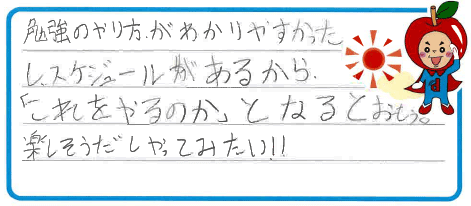 勉強のやり方.がわかりやすかった
し.スケジュールがあるから.
「これをやるのか」となるとおもう。
楽しそうだしやってみたい!!